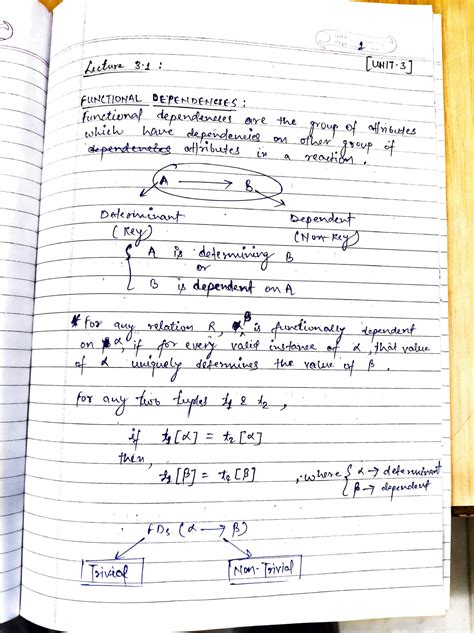 1
Lecture 3.1 :
[UNIT-3]
FUNCTIONAL DEPENDENCIES :
Functional dependencies are the group of attributes
which have dependencies on other group of
attributes in a reaction.
A → B
Determinant Dependent
(Key) (Non-Key)
{ A is determining B
or
B is dependent on A
* For any relation R, β is functionally dependent
on α, if for every valid instance of α, that value
of α uniquely determines the value of β.
For any two tuples t1 & t2,
if t1[α] = t2[α]
then,
t1[β] = t2[β] , where { α → determinant
β → dependent
FDs (α → β)
Trivial Non-Trivial